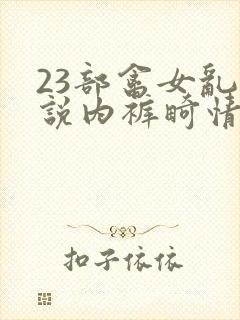 23部畜女乱
說内裤畸情
扣子依依